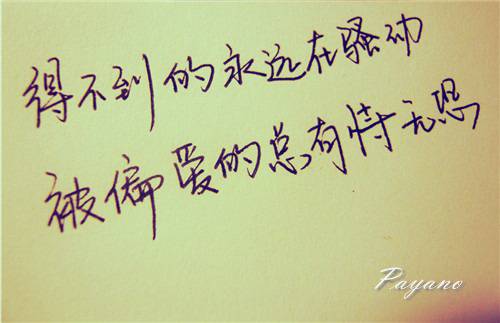 得不到的永远在骚动
被偏爱的总有恃无恐
Payano